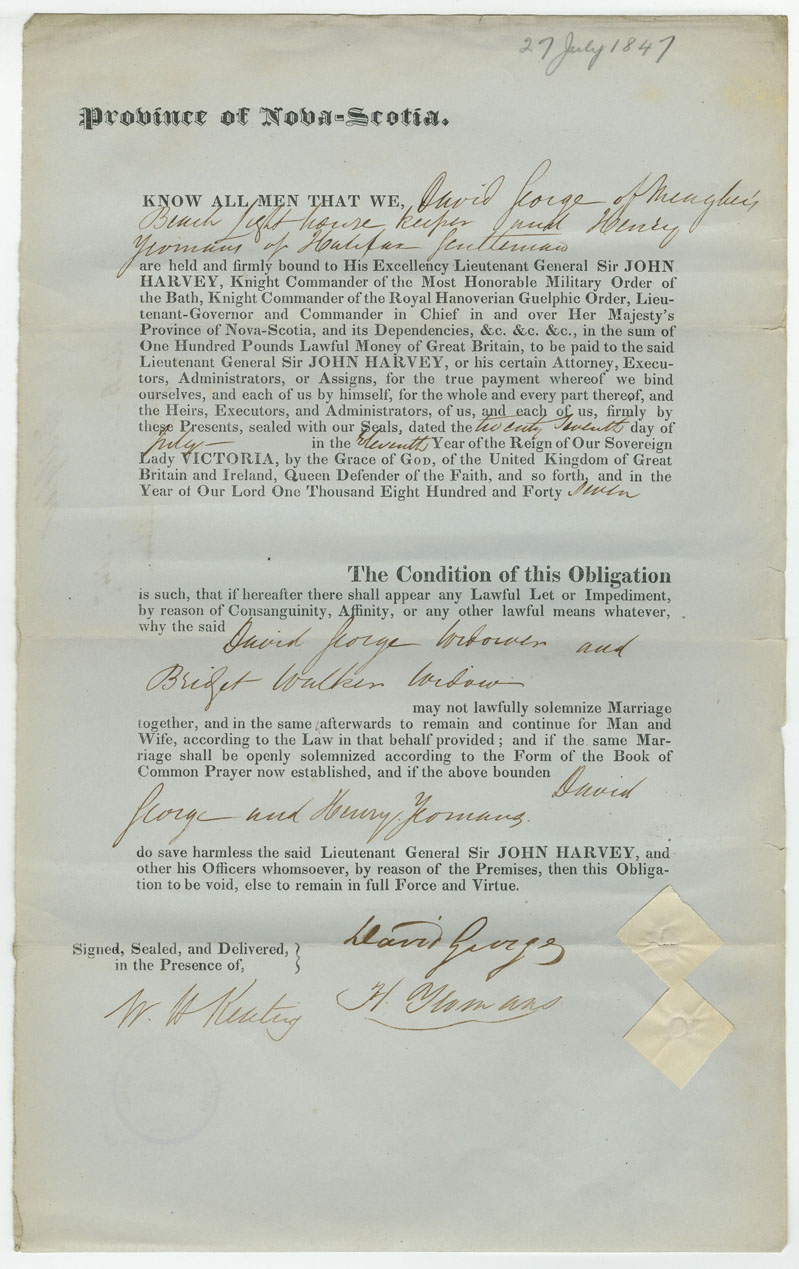 27 July 1847
Province of Nova-Scotia.
KNOW ALL MEN THAT WE, David George of Meagher's
Beach Light house keeper and Henry
Yeomans of Halifax Gentleman
are held and firmly bound to His Excellency Lieutenant General Sir JOHN
HARVEY, Knight Commander of the Most Honorable Military Order of
the Bath, Knight Commander of the Royal Hanoverian Guelphic Order, Lieu-
tenant-Governor and Commander in Chief in and over Her Majesty's
Province of Nova-Scotia, and its Dependencies, &c. &c. &c., in the sum of
One Hundred Pounds Lawful Money of Great Britain, to be paid to the said
Lieutenant General Sir JOHN HARVEY, or his certain Attorney, Execu-
tors, Administrators, or Assigns, for the true payment whereof we bind
ourselves, and each of us by himself, for the whole and every part thereof, and
the Heirs, Executors, and Administrators, of us, and each of us, firmly by
these Presents, sealed with our Seals, dated the twenty Seventh day of
July in the Eleventh Year of the Reign of Our Sovereign
Lady VICTORIA, by the Grace of GOD, of the United Kingdom of Great
Britain and Ireland, Queen Defender of the Faith, and so forth, and in the
Year of Our Lord One Thousand Eight Hundred and Forty Seven
The Condition of this Obligation
is such, that if hereafter there shall appear any Lawful Let or Impediment,
by reason of Consanguinity, Affinity, or any other lawful means whatever,
why the said David George Widower and
Bridget Walker Widow
may not lawfully solemnize Marriage
together, and in the same afterwards to remain and continue for Man and
Wife, according to the Law in that behalf provided; and if the same Mar-
riage shall be openly solemnized according to the Form of the Book of
Common Prayer now established, and if the above bounden David
George and Henry Yeomans
do save harmless the said Lieutenant General Sir JOHN HARVEY, and
other his Officers whomsoever, by reason of the Premises, then this Obliga-
tion to be void, else to remain in full Force and Virtue.
Signed, Sealed, and Delivered,
in the Presence of,
David George
W. H Keating
H. Yeomans